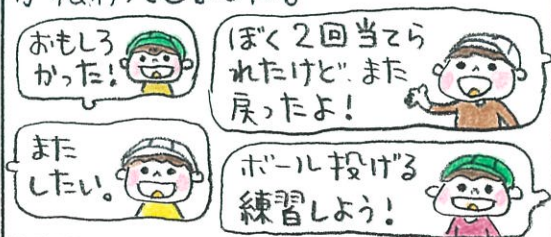 おもしろ
かった！
ぼく２回当てら
れたけど、また
戻ったよ！
また
したい。
ボール投げる
練習しよう！